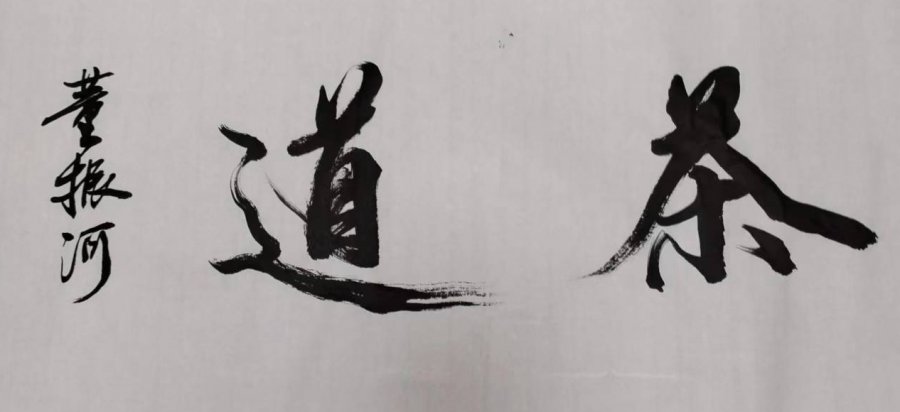 茶道
董振河